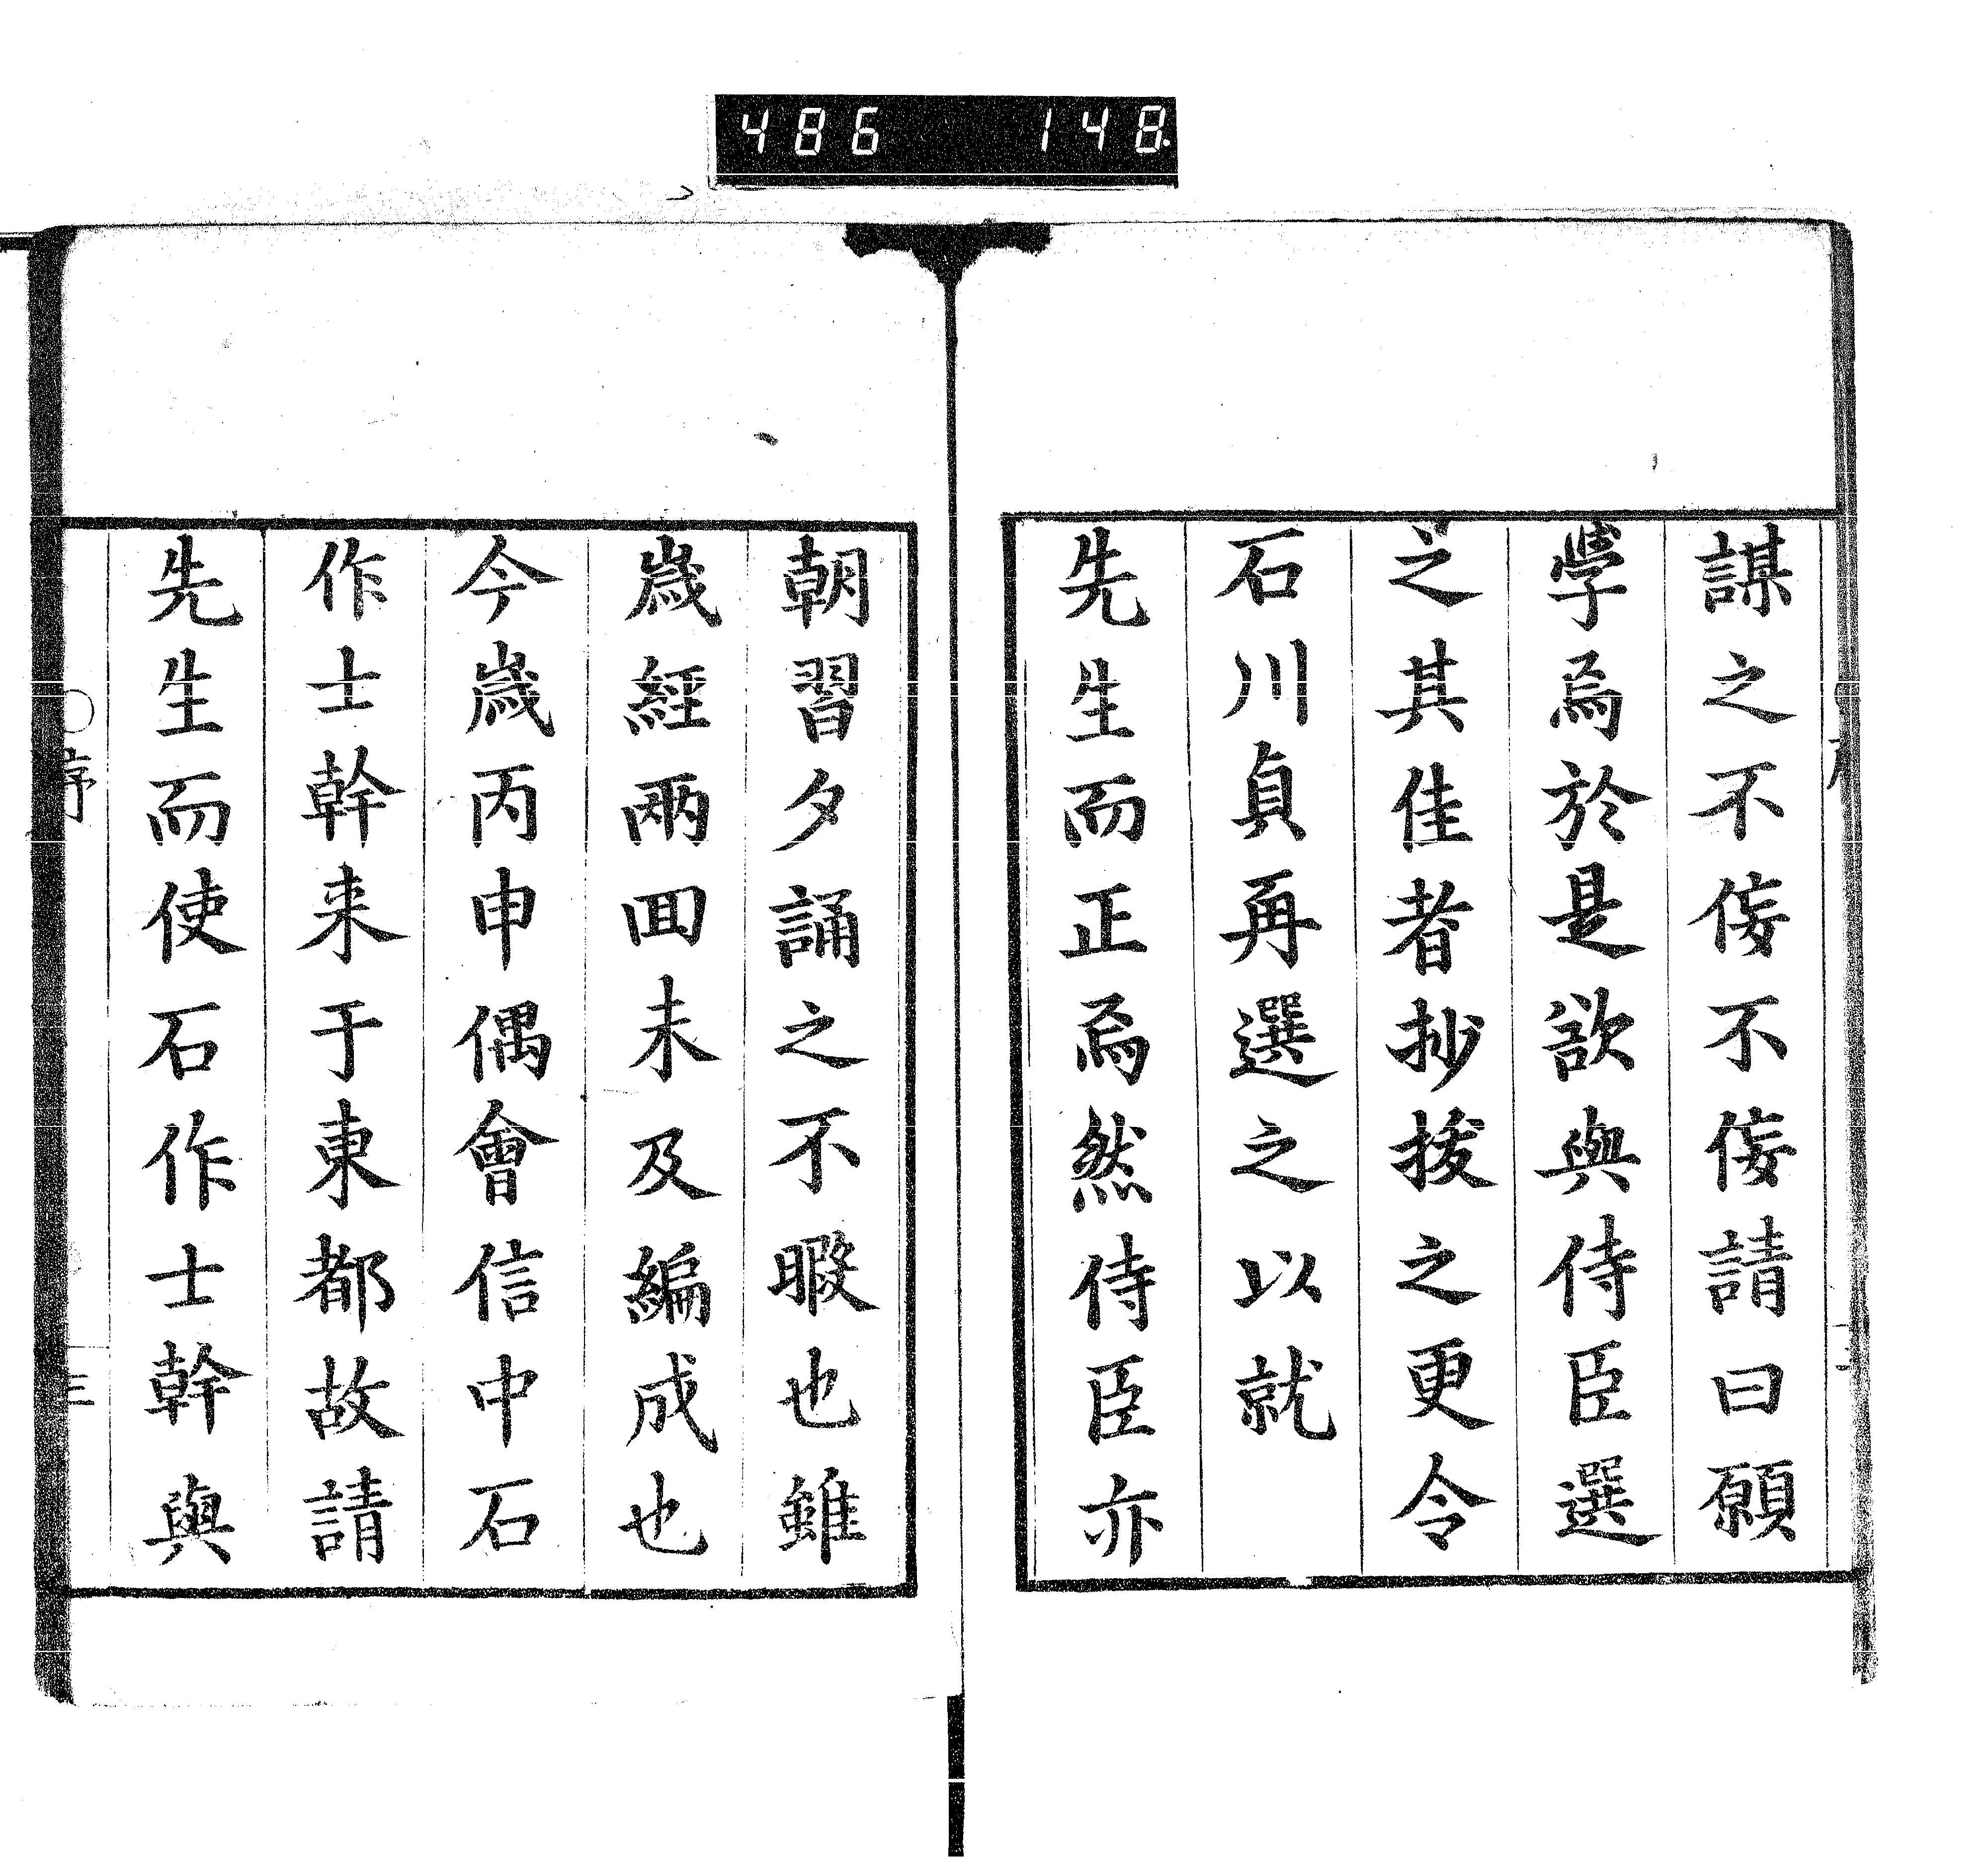 486 148
謀之不侫不侫請曰願
學焉於是欲與侍臣選
之其佳者抄拔之更令
石川貞再選之以就
先生而正焉然侍臣亦
朝習夕誦之不暇也雖
歲經兩回未及編成也
今歲丙申偶會信中石
作士幹来于東都故請
先生而使石作士幹與
序
三